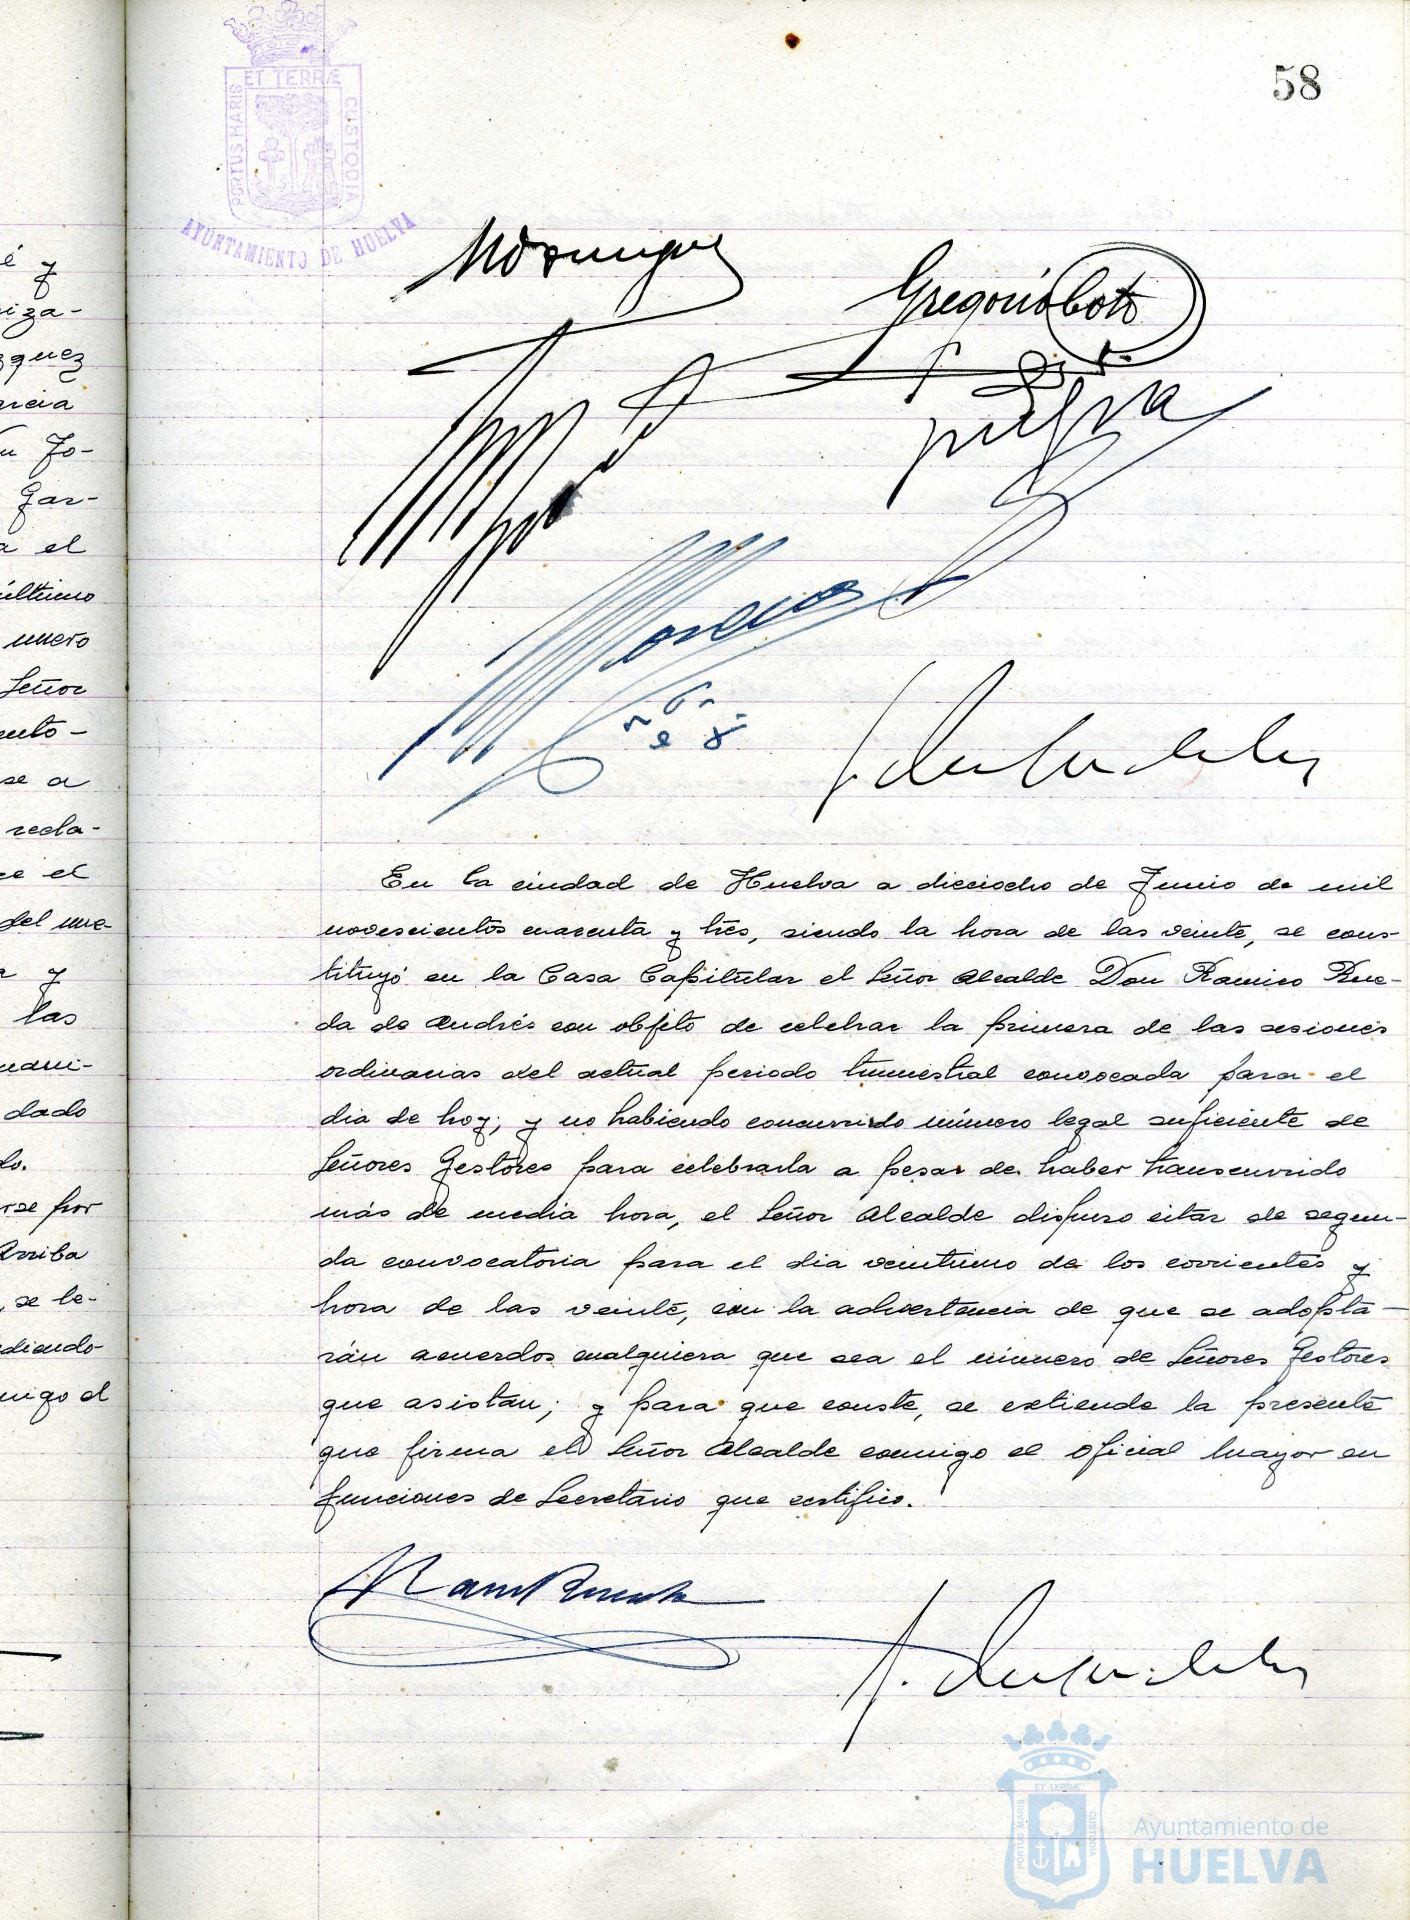 58
ET TERRÆ
PORTUS MARIS
CUSTODIA
AYUNTAMIENTO DE HUELVA
é y
riza-
zquez
arcia
Jo-
Gar-
a el
último
mero
Señor
se a
recla-
el
del me-
y
las
dado
do.
rse por
Arriba
, se le-
migo el
Gregorio Coto
En la ciudad de Huelva a dieciocho de Junio de mil
novescientos cuarenta y trés, siendo la hora de las veinte, se cons-
tituyó en la Casa Capitular el Señor Alcalde Don Ramiro Rue-
da de Andrés con objeto de celebrar la primera de las sesiones
ordinarias del actual periodo trimestral convocada para el
dia de hoy; y no habiendo concurrido número legal suficiente de
Señores Gestores para celebrarla a pesar de haber transcurrido
más de media hora, el Señor Alcalde dispuso citar de segun-
da convocatoria para el dia veintiuno de los corrientes y
hora de las veinte, con la advertencia de que se adopta-
rán acuerdos cualquiera que sea el número de Señores Gestores
que asistan; y para que conste, se extiende la presente
que firma el Señor Alcalde conmigo el Oficial Mayor en
funciones de Secretario que certifico.
Ram Rueda
ET TERRÆ
PORTUS MARIS
CUSTODIA
Ayuntamiento de
HUELVA